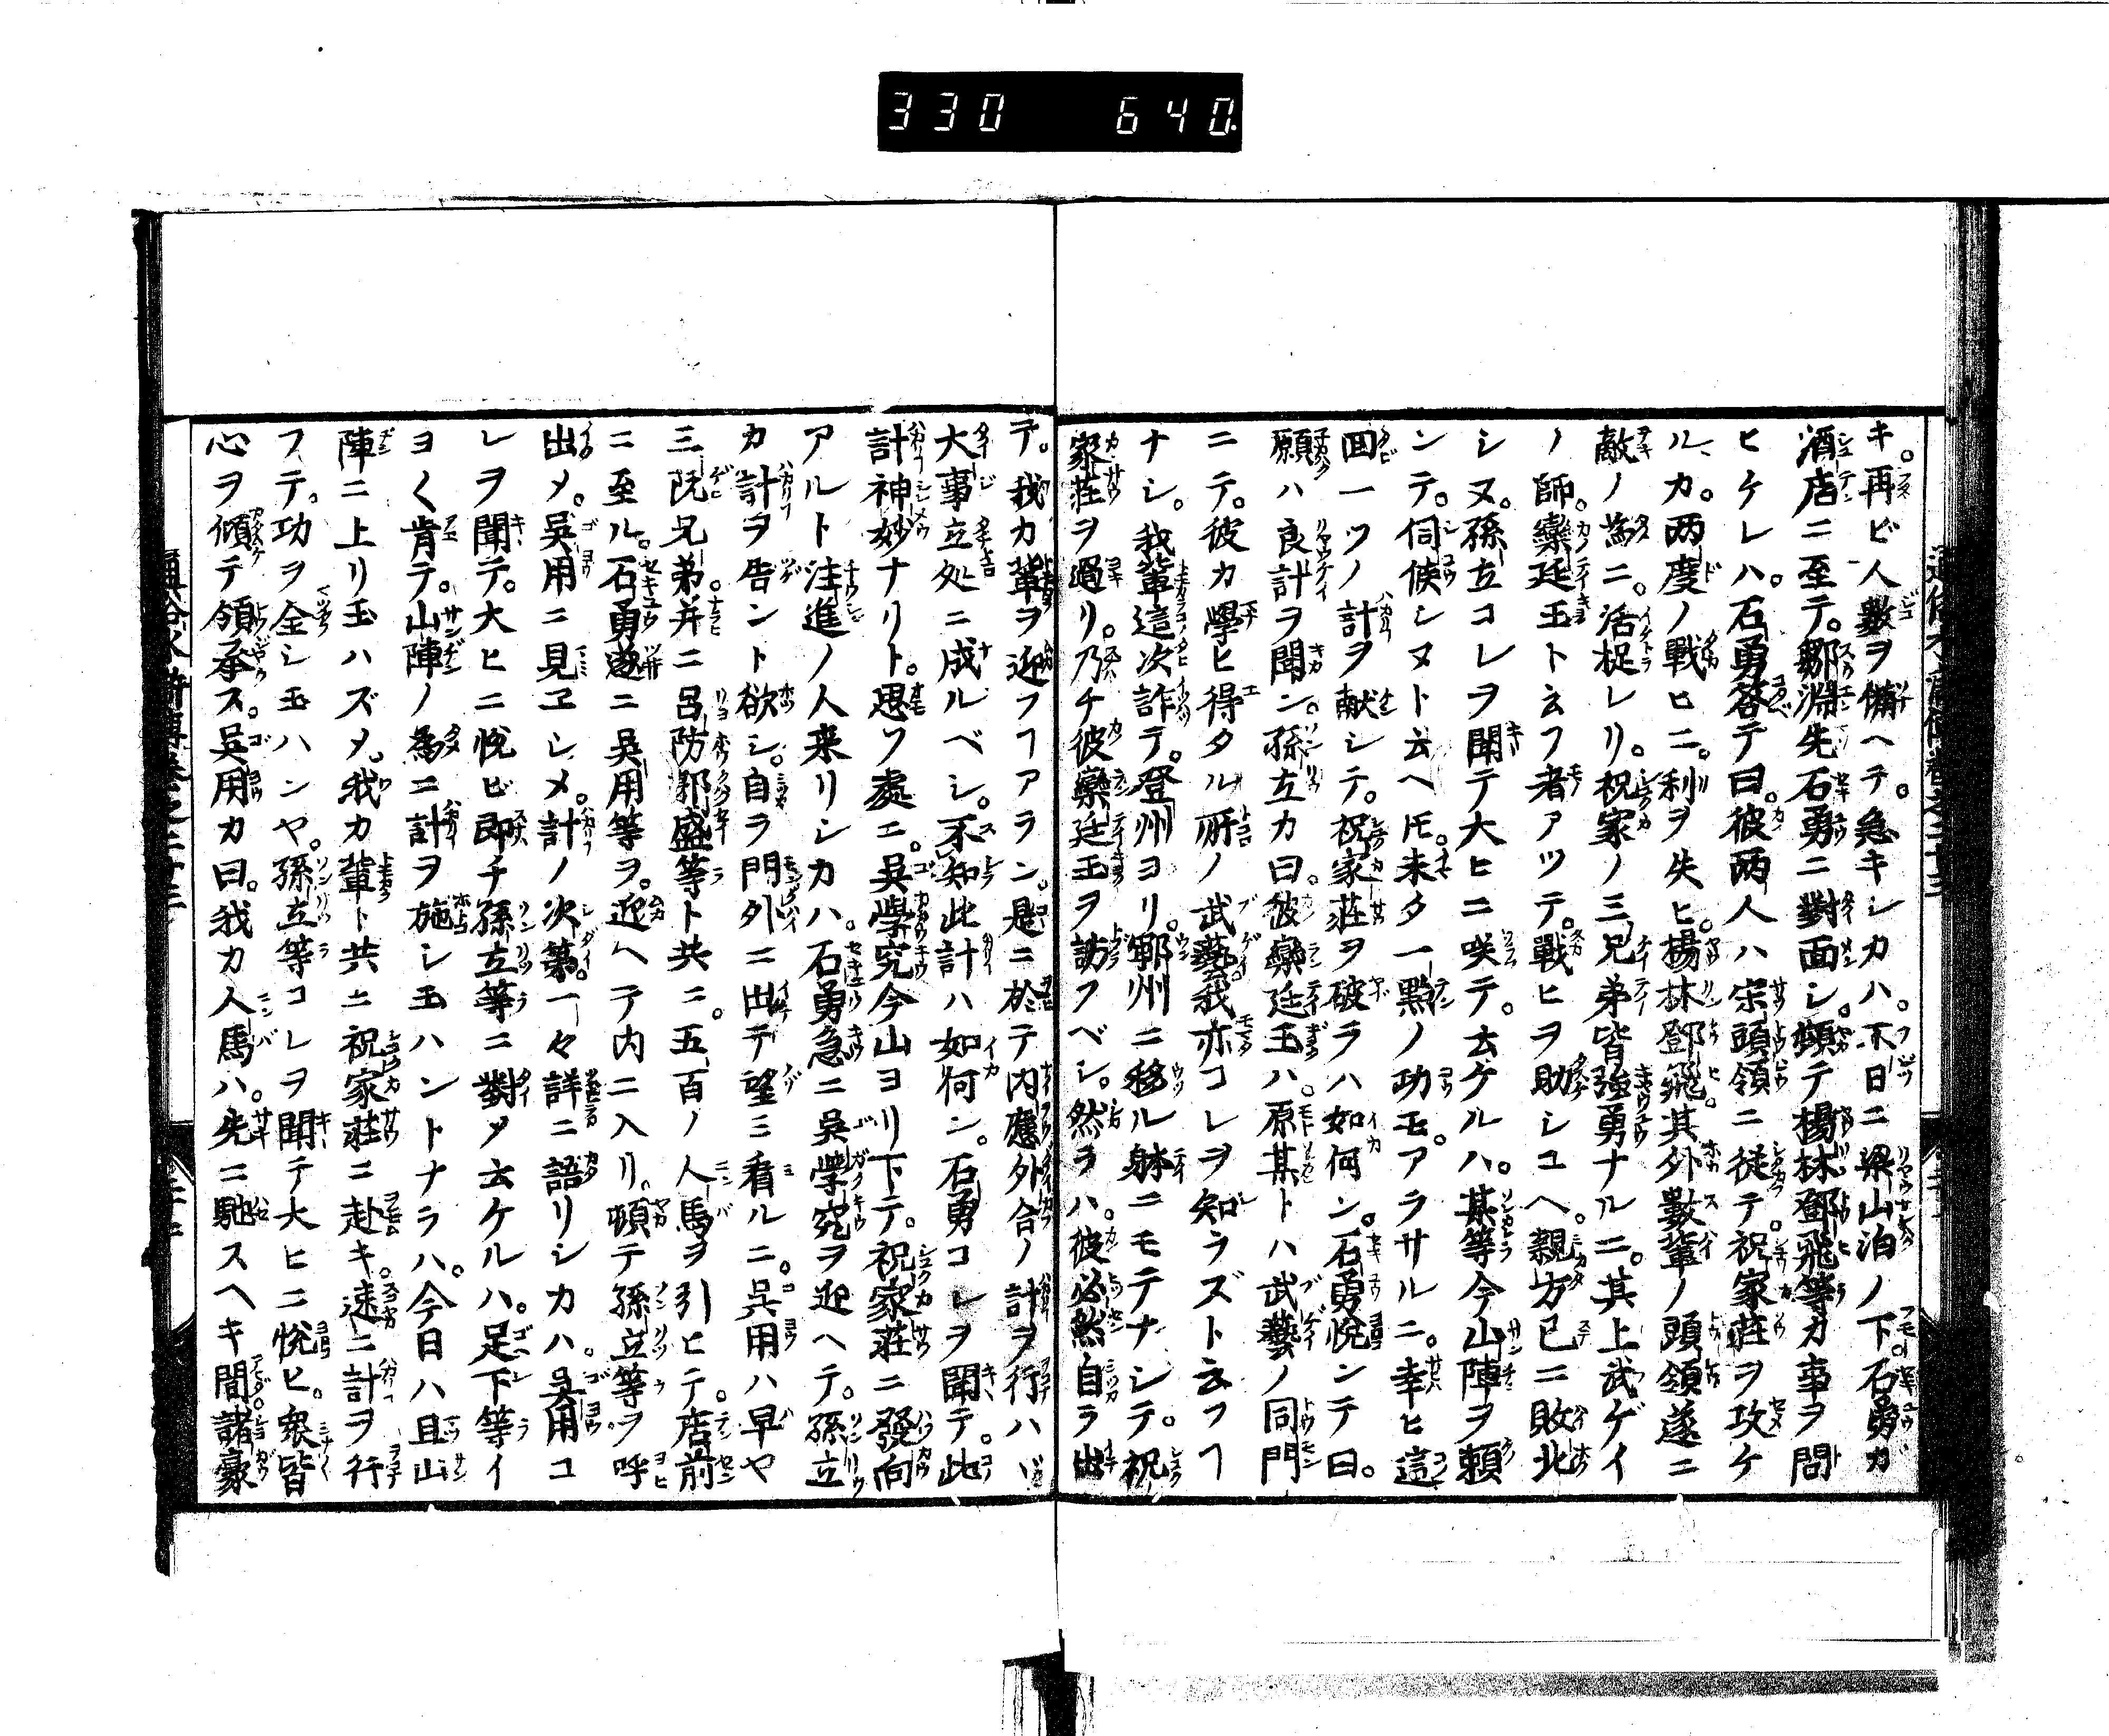 330 640.
キ。再ビ人數ヲ備ヘテ。急キシカハ。不日ニ梁山泊ノ下。石勇カ
酒店ニ至テ。鄒淵先石勇ニ對面シ。頓テ楊林鄧飛等カ事ヲ問
ヒケレハ。石勇答テ曰。彼兩人ハ宋頭領ニ從テ。祝家莊ヲ攻ケ
ルカ。兩度ノ戰ヒニ。利ヲ失ヒ。楊林鄧飛其外數輩ノ頭領遂ニ
敵ノ爲ニ。活捉レリ。祝家ノ三兄弟皆強勇ナルニ。其上武ゲイ
ノ師。欒廷玉ト云フ者アツテ。戰ヒヲ助シユヘ。親方已ニ敗北
シヌ。孫立コレヲ聞テ大ヒニ咲テ。云ケルハ。某等今山陣ヲ頼
ンテ。伺候シヌト云ヘ𪜈。未タ一點ノ功モ。アラサルニ。幸ヒ這
回一ツノ計ヲ獻シテ。祝家莊ヲ破ラハ如何ン。石勇悅ンテ曰。
願ハ良計ヲ聞ン。孫立カ曰。彼欒廷玉ハ。原某トハ武藝ノ同門
ニテ。彼カ學ヒ得タル所ノ武藝。我亦コレヲ知ラズト云フヿ
ナシ。我輩這次詐テ。登州ヨリ。鄆州ニ移ル躰ニモテナシテ。祝
家莊ヲ過リ。乃チ彼欒廷玉ヲ訪フベシ。然ラハ。彼必然自ラ出
テ。我カ輩ヲ迎フヿアラン。是ニ於テ内應外合ノ計ヲ行ハヾ
大事立処ニ成ルベシ。不知此計ハ如何ン。石勇コレヲ聞テ。此
計神妙ナリト。思フ處エ。吳學究今山ヨリ下テ。祝家莊ニ發向
アルト注進ノ人来リシカハ。石勇急ニ吳學究ヲ迎ヘテ。孫立
カ計ヲ告ント欲シ。自ラ門外ニ出テ望ミ看ルニ。吳用ハ早ヤ
三阮兄弟。并ニ呂防郭盛等ト共ニ。五百ノ人馬ヲ引ヒテ。店前
ニ至ル。石勇遂ニ吳用等ヲ。迎ヘテ内ニ入リ。頓テ孫立等ヲ呼
出メ。吳用ニ見ヱシメ。計ノ次第。一々詳ニ語リシカハ。吳用コ
レヲ聞テ。大ヒニ悅ビ即チ孫立等ニ對メ云ケルハ。足下等イ
ヨく肯テ。山陣ノ爲ニ計ヲ施シ玉ハントナラハ。今日ハ且山
陣ニ上リ玉ハズメ。我カ輩ト共ニ祝家莊ニ赴キ。速ニ計ヲ行
フテ。功ヲ全シ玉ハンヤ。孫立等コレヲ聞テ大ヒニ悅ヒ。衆皆
心ヲ傾テ領承ス。吳用カ曰。我カ人馬ハ。先ニ馳スヘキ間。諸豪